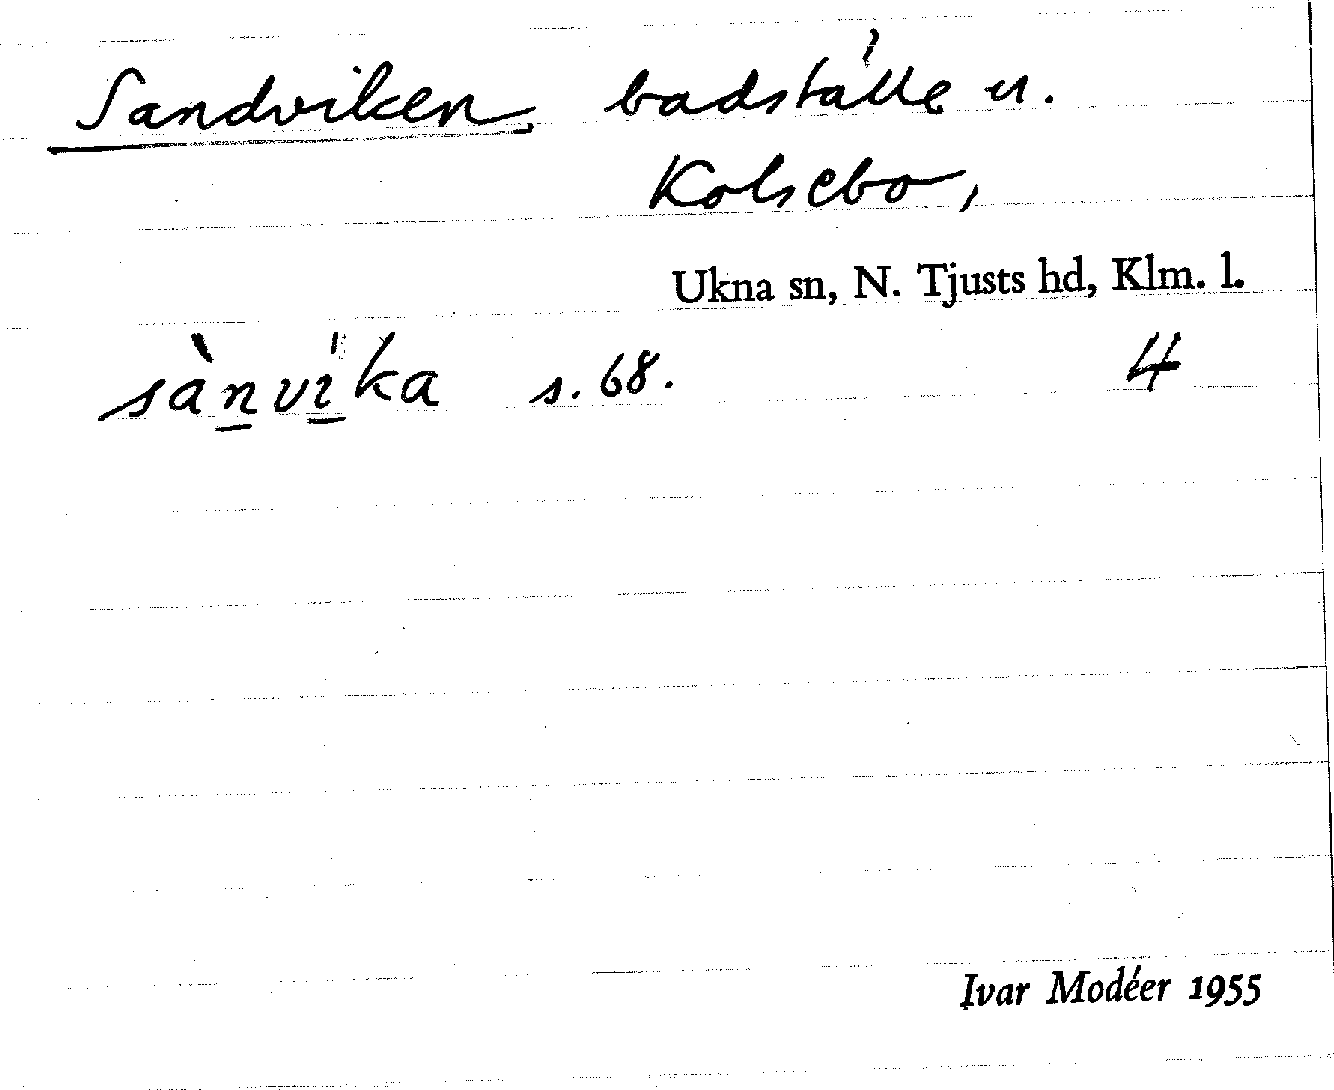 Sandviken, badställe u.
Kolsebo,
Ukna sn, N. Tjusts hd, Klm. l.
sànvíka s. 68. 4
Ivar Modéer 1955